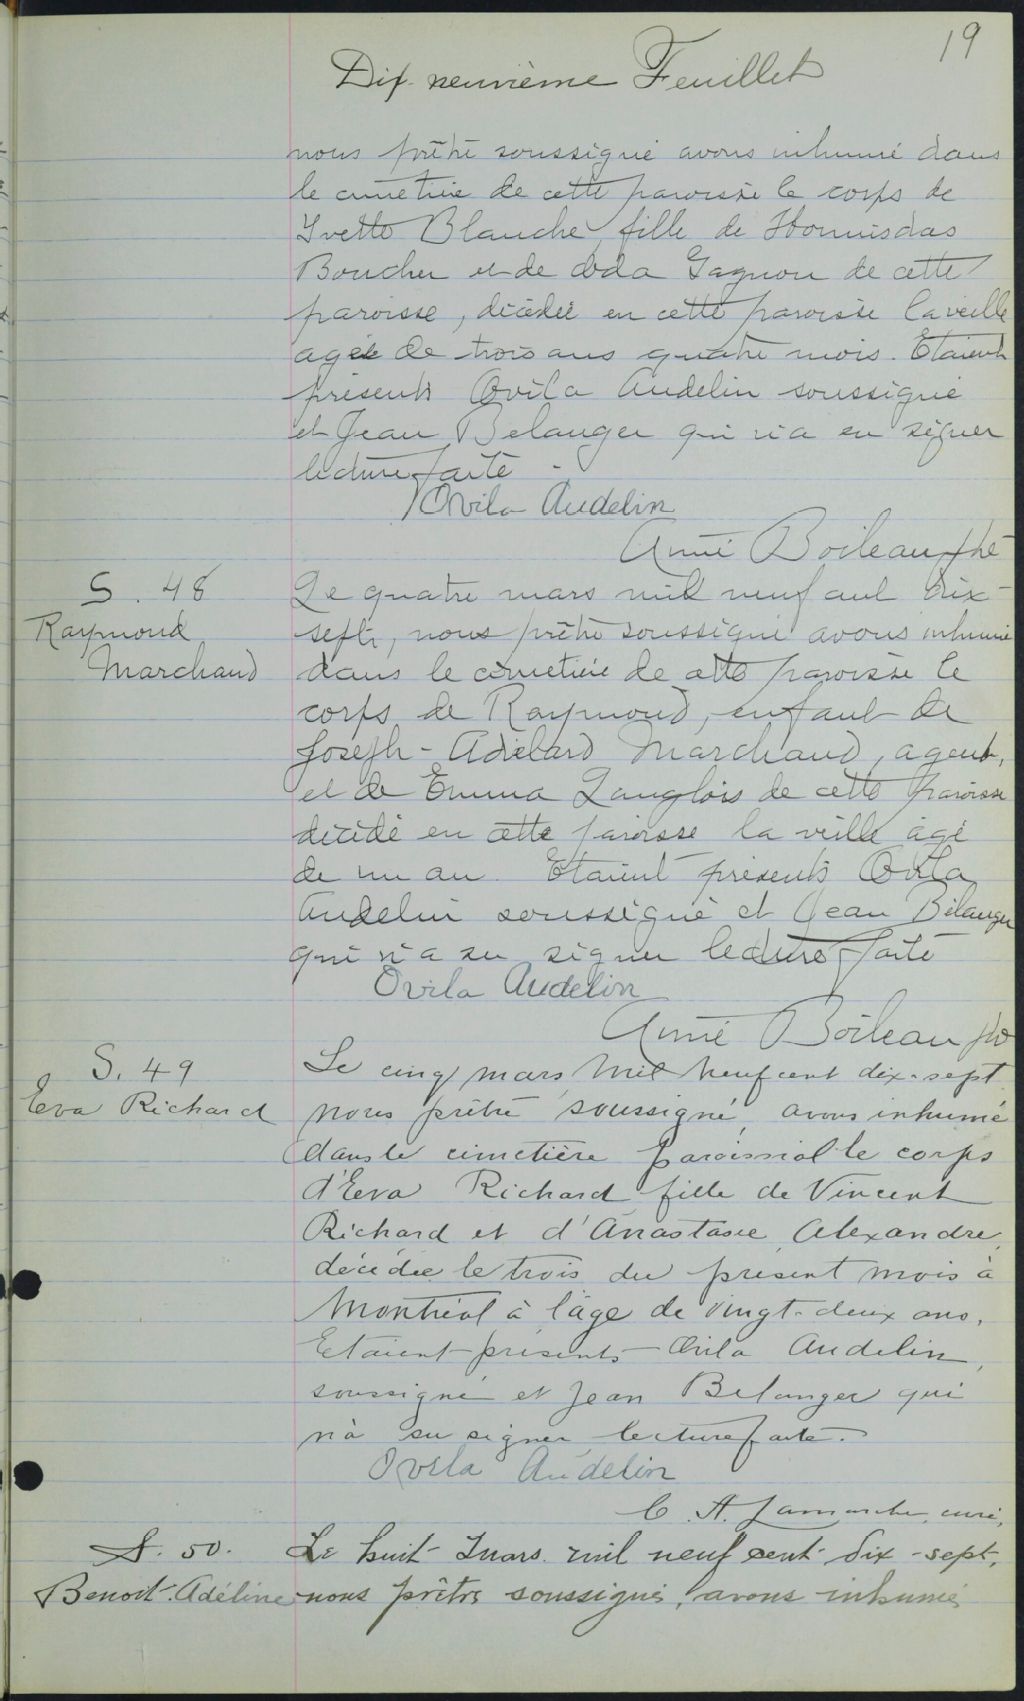 19
Dix-neuvième Feuillet
nous prêtre soussigné avons inhumé dans
le cimetière de cette paroisse le corps de
Yvette Blanche, fille de Hormisdas
Boucher et de Gagnon de cette
paroisse, décédée en cette paroisse la veille
agée de trois ans quatre mois. Etaient
présents Ovila Audelin soussigné
et Jean Belanger qui n'a su signer
lecture faite -
Ovila Audelin
Aimé Boileau ptre
S. 48
Raymond
Marchand
Le quatre mars mil neuf cent dix-
sept, nous prêtre soussigné avons inhumé
dans le cimetière de cette paroisse le
corps de Raymond, enfant de
Joseph-Adélard Marchand, agent,
et de Emma Langlois de cette paroisse
décédé en cette paroisse la veille âgé
de un an. Etaient présents Ovila
Audelin soussigné et Jean Bélanger
qui n'a su signer lecture faite
Ovila Audelin
Aimé Boileau ptre
S. 49
Eva Richard
Le cinq mars mil neuf cent dix-sept
nous prêtre soussigné, avons inhumé
dans le cimetière paroissial le corps
d'Eva Richard fille de Vincent
Richard et d'Anastasie Alexandre,
décédée le trois du présent mois à
Montréal à l'âge de vingt-deux ans.
Etaient présents Ovila Audelin,
soussigné et Jean Belanger qui
n'a su signer, lecture faite.
Ovila Audelin
C. A. Lamarche, curé,
S. 50.
Benoit. Adéline
Le huit Mars mil neuf cent dix-sept,
nous prêtre soussigné, avons inhumé